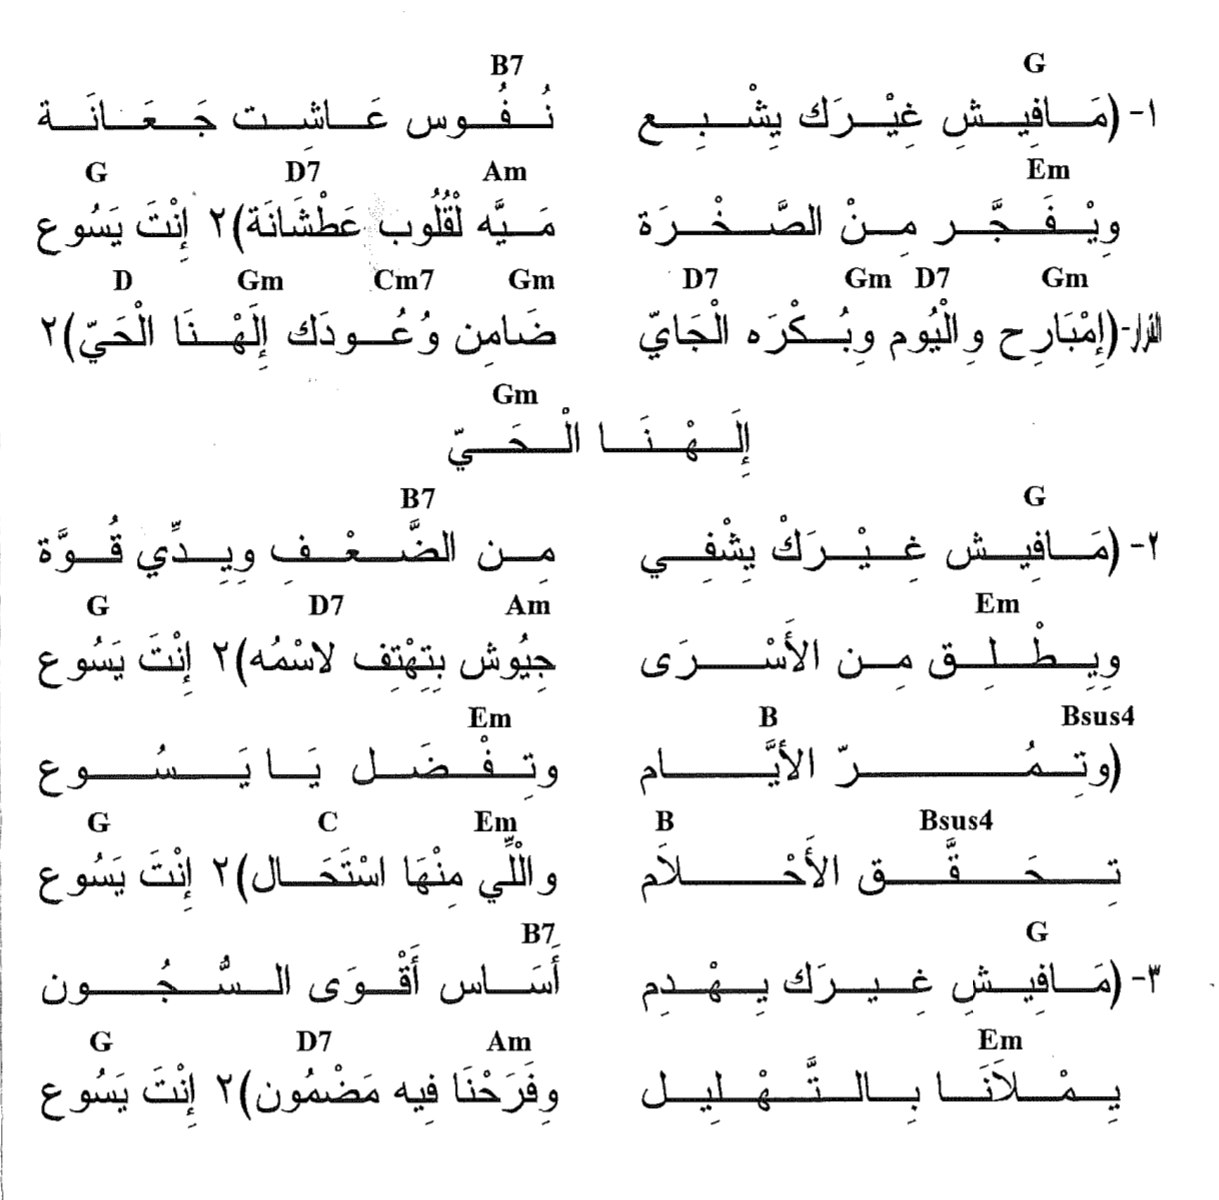 G B7
١- (مَـافِيـشِ غِيْـرَك يِشْـبِـع نُـفُـوس عَـاشِـت جَـعَـانَـة
Em Am D7 G
وِيْـفَـجَّـر مِـنْ الصَّـخْـرَة مَـيَّه لْقُلُوب عَطْشَانَة)٢ إِنْتَ يَسُوع
Gm D7 Gm D7 Gm Cm7 Gm D
القرار-(إِمْبَارِح وِالْيُوم وِبُـكْرَه الْجَايّ ضَامِن وُعُـودَك إِلَهْـنَا الْحَيّ)٢
Gm
إِلَـهْـنَـا الْـحَـيّ
G B7
٢- (مَـافِيـش غِـيْـرَكْ يِشْفِـي مِـن الضَّـعْـفِ وِيِـدِّي قُـوَّة
Em Am D7 G
وِيِـطْـلِـق مِـن الأَسْـرَى جِيُوش بِتِهْتِف لاسْمُه)٢ إِنْتَ يَسُوع
Bsus4 B Em
(وتِـمُـرّ الأيَّـام وتِـفْـضَـل يَـا يَـسُـوع
Bsus4 B Em C G
تِـحَـقَّـق الأَحْـلاَم والْلِّي مِنْهَا اسْتَحَـال)٢ إِنْتَ يَسُوع
G B7
٣- (مَـافِيـشِ غِـيـرَك يِـهْـدِم أَسَـاس أَقْـوَى الـسُّـجُـون
Em Am D7 G
يِـمْـلاَنَـا بِـالـتَّـهْـلِيـل وِفَرَحْنَا فِيه مَضْمُون)٢ إِنْتَ يَسُوع